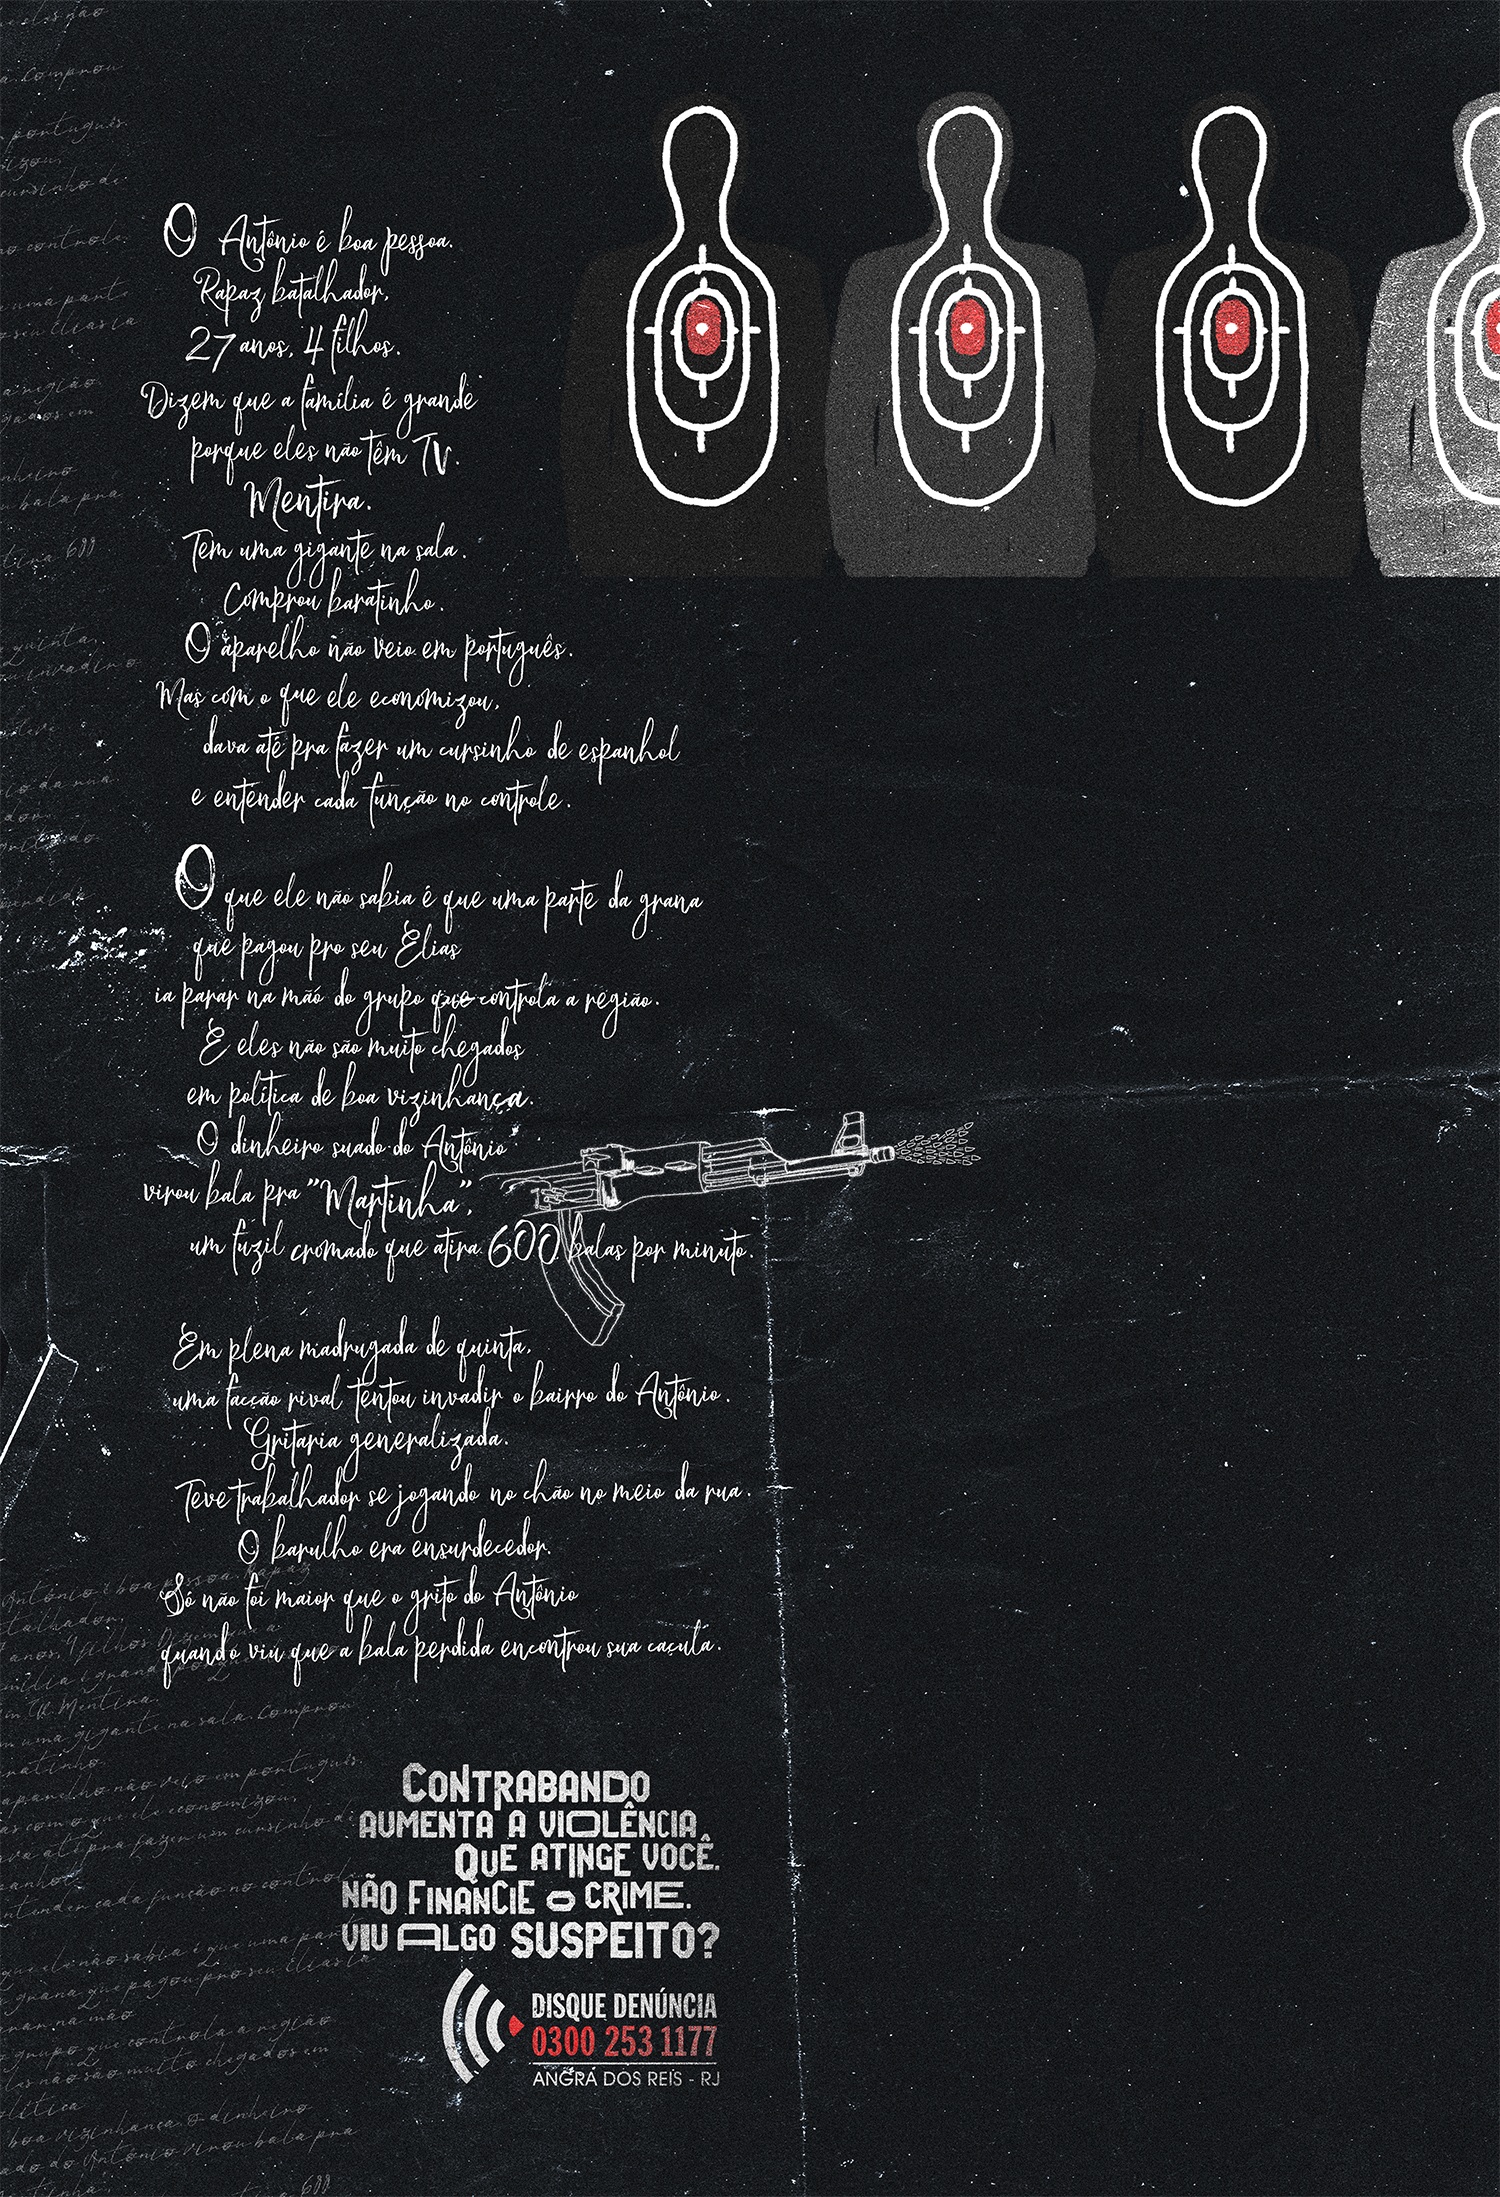 O Antônio é boa pessoa.
Rapaz batalhador,
27 anos, 4 filhos.
Dizem que a família é grande
porque eles não têm TV.
Mentira.
Tem uma gigante na sala.
Comprou baratinho.
O aparelho não veio em português.
Mas com o que ele economizou,
dava até pra fazer um cursinho de espanhol
e entender cada função no controle.
O que ele não sabia é que uma parte da grana
que pagou pro seu Elias
ia parar na mão do grupo que controla a região.
E eles não são muito chegados
em política de boa vizinhança.
O dinheiro suado do Antônio
virou bala pra "Martinha",
um fuzil cromado que atira 600 balas por minuto.
Em plena madrugada de quinta,
uma facção rival tentou invadir o bairro do Antônio.
Gritaria generalizada.
Teve trabalhador se jogando no chão no meio da rua.
O barulho era ensurdecedor.
Só não foi maior que o grito do Antônio
quando viu que a bala perdida encontrou sua caçula.
CONTRABANDO
AUMENTA A VIOLÊNCIA
QUE ATINGE VOCÊ.
NÃO FINANCIE O CRIME.
VIU ALGO SUSPEITO?
DISQUE DENÚNCIA
0300 253 1177
ANGRA DOS REIS - RJ